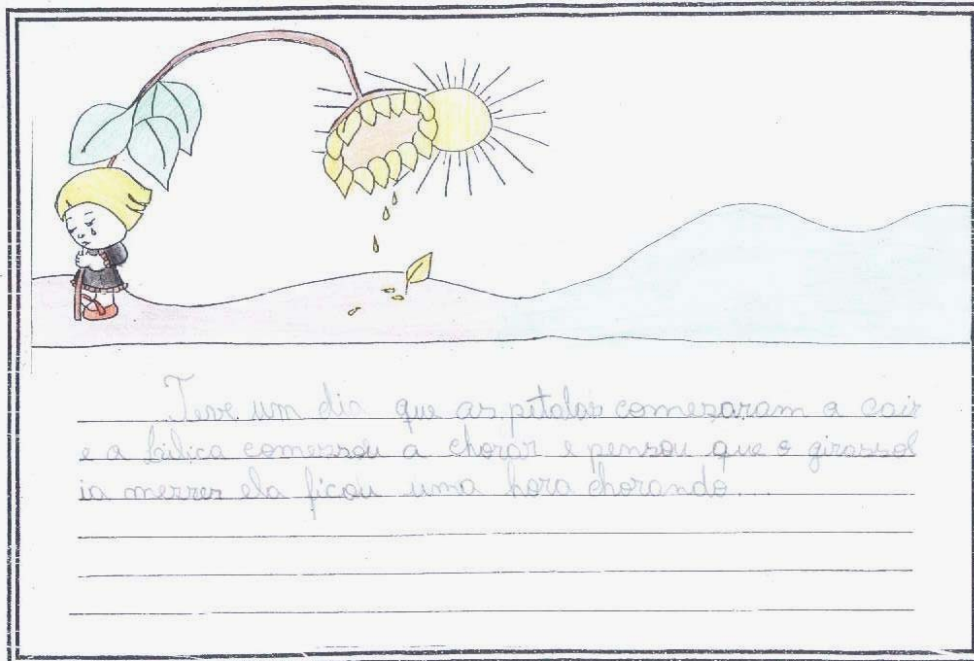 Teve um dia que as pitalas comesaram a cair
e a bilica comessou a chorar e pensou que o girassol
ia merrer ela ficou uma hora chorando...